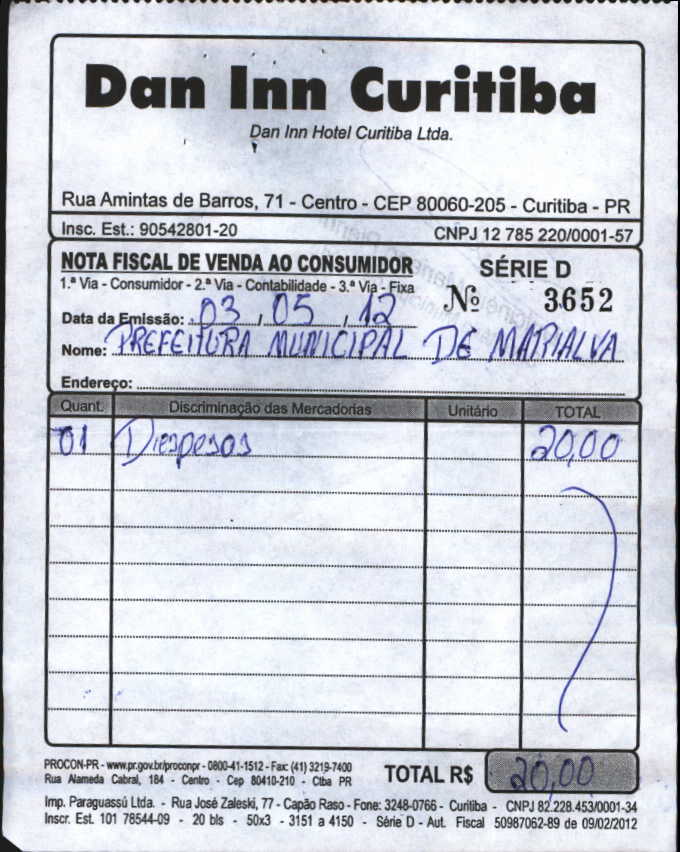 Dan Inn Curitiba
Dan Inn Hotel Curitiba Ltda.
Rua Amintas de Barros, 71 - Centro - CEP 80060-205 - Curitiba - PR
Insc. Est.: 90542801-20 CNPJ 12 785 220/0001-57
NOTA FISCAL DE VENDA AO CONSUMIDOR SÉRIE D
1.ª Via - Consumidor - 2.ª Via - Contabilidade - 3.ª Via - Fixa Nº 3652
Data da Emissão: 03, 05, 12
Nome: PREFEITURA MUNICIPAL DE MARIALVA
Endereço:
Quant. Discriminação das Mercadorias Unitário TOTAL
01 Despesas 20,00
PROCON-PR - www.pr.gov.br/proconpr - 0800-41-1512 - Fax: (41) 3219-7400
Rua Alameda Cabral, 184 - Centro - Cep 80410-210 - Ctba PR
TOTAL R$ 20,00
Imp. Paraguassú Ltda. - Rua José Zaleski, 77 - Capão Raso - Fone: 3248-0766 - Curitiba - CNPJ 82.228.453/0001-34
Inscr. Est. 101 78544-09 - 20 bls - 50x3 - 3151 a 4150 - Série D - Aut. Fiscal 50987062-89 de 09/02/2012